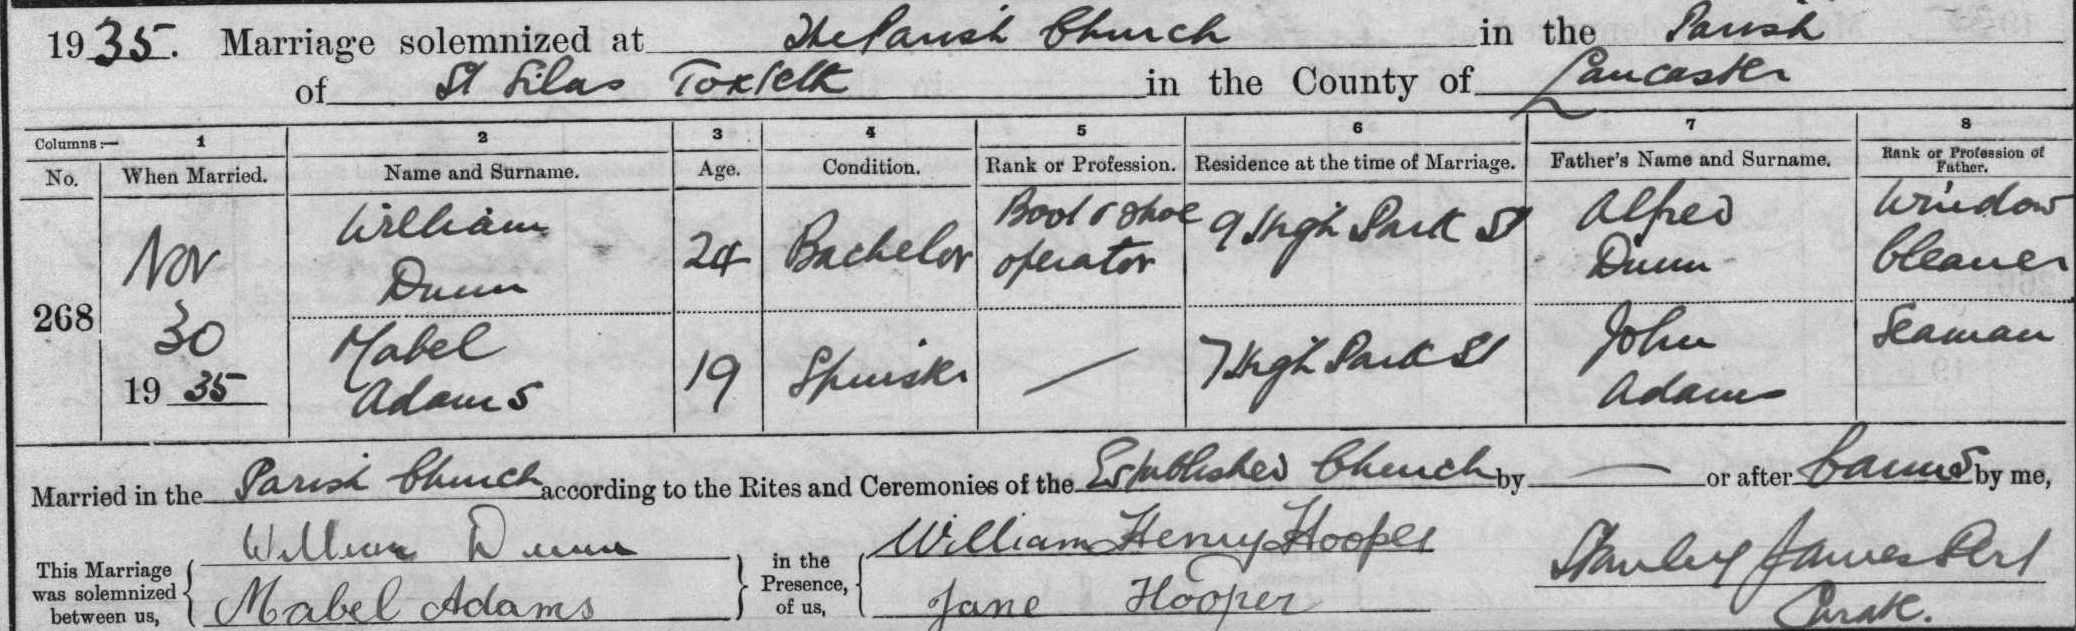 1935. Marriage solemnized at The Parish Church in the Parish
of St Silas Toxteth in the County of Lancaster
Columns:— 1 2 3 4 5 6 7 8
No. When Married. Name and Surname. Age. Condition. Rank or Profession. Residence at the time of Marriage. Father's Name and Surname. Rank or Profession of Father.
268 Nov 30 1935
William Dunn 24 Bachelor Boot & Shoe operator 9 High Park St Alfred Dunn Window Cleaner
Mabel Adams 19 Spinster — 7 High Park St John Adams Seaman
Married in the Parish Church according to the Rites and Ceremonies of the Established Church by — or after Banns by me,
This Marriage was solemnized between us,
William Dunn
Mabel Adams
in the Presence, of us,
William Henry Hooper
Jane Hooper
Stanley James
Curate.